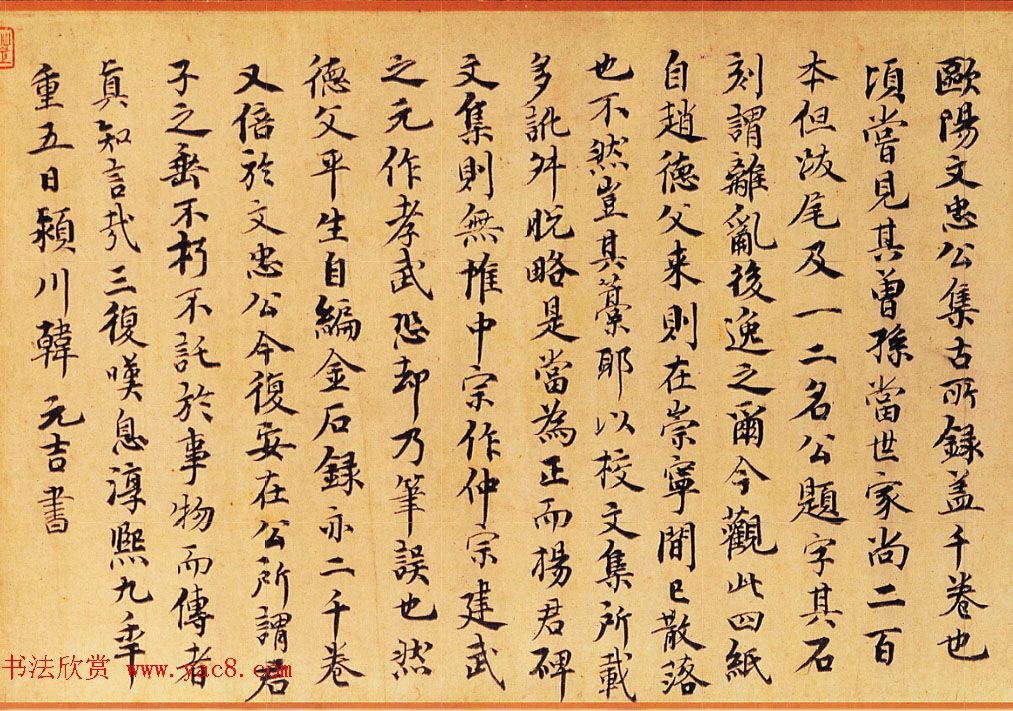 歐陽文忠公集古所録盖千卷也
頃嘗見其曾孫當世家尚二百
本但跋尾及一二名公題字其石
刻謂離亂後逸之爾今觀此四紙
自趙德父来則在崇寧間已散落
也不然豈其藁耶以校文集所載
多訛舛脱略是當為正而楊君碑
文集則無惟中宗作仲宗建武
之元作孝武恐却乃筆誤也然
德父平生自編金石録亦二千卷
又倍於文忠公今復安在公所謂君
子之垂不朽不託於事物而傳者
真知言哉三復嘆息淳熙九年
重五日潁川韓元吉書
书法欣赏 www.yac8.com